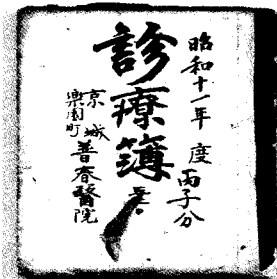 昭和十一年度 丙子分
診療簿
京城
樂園町
普春醫院